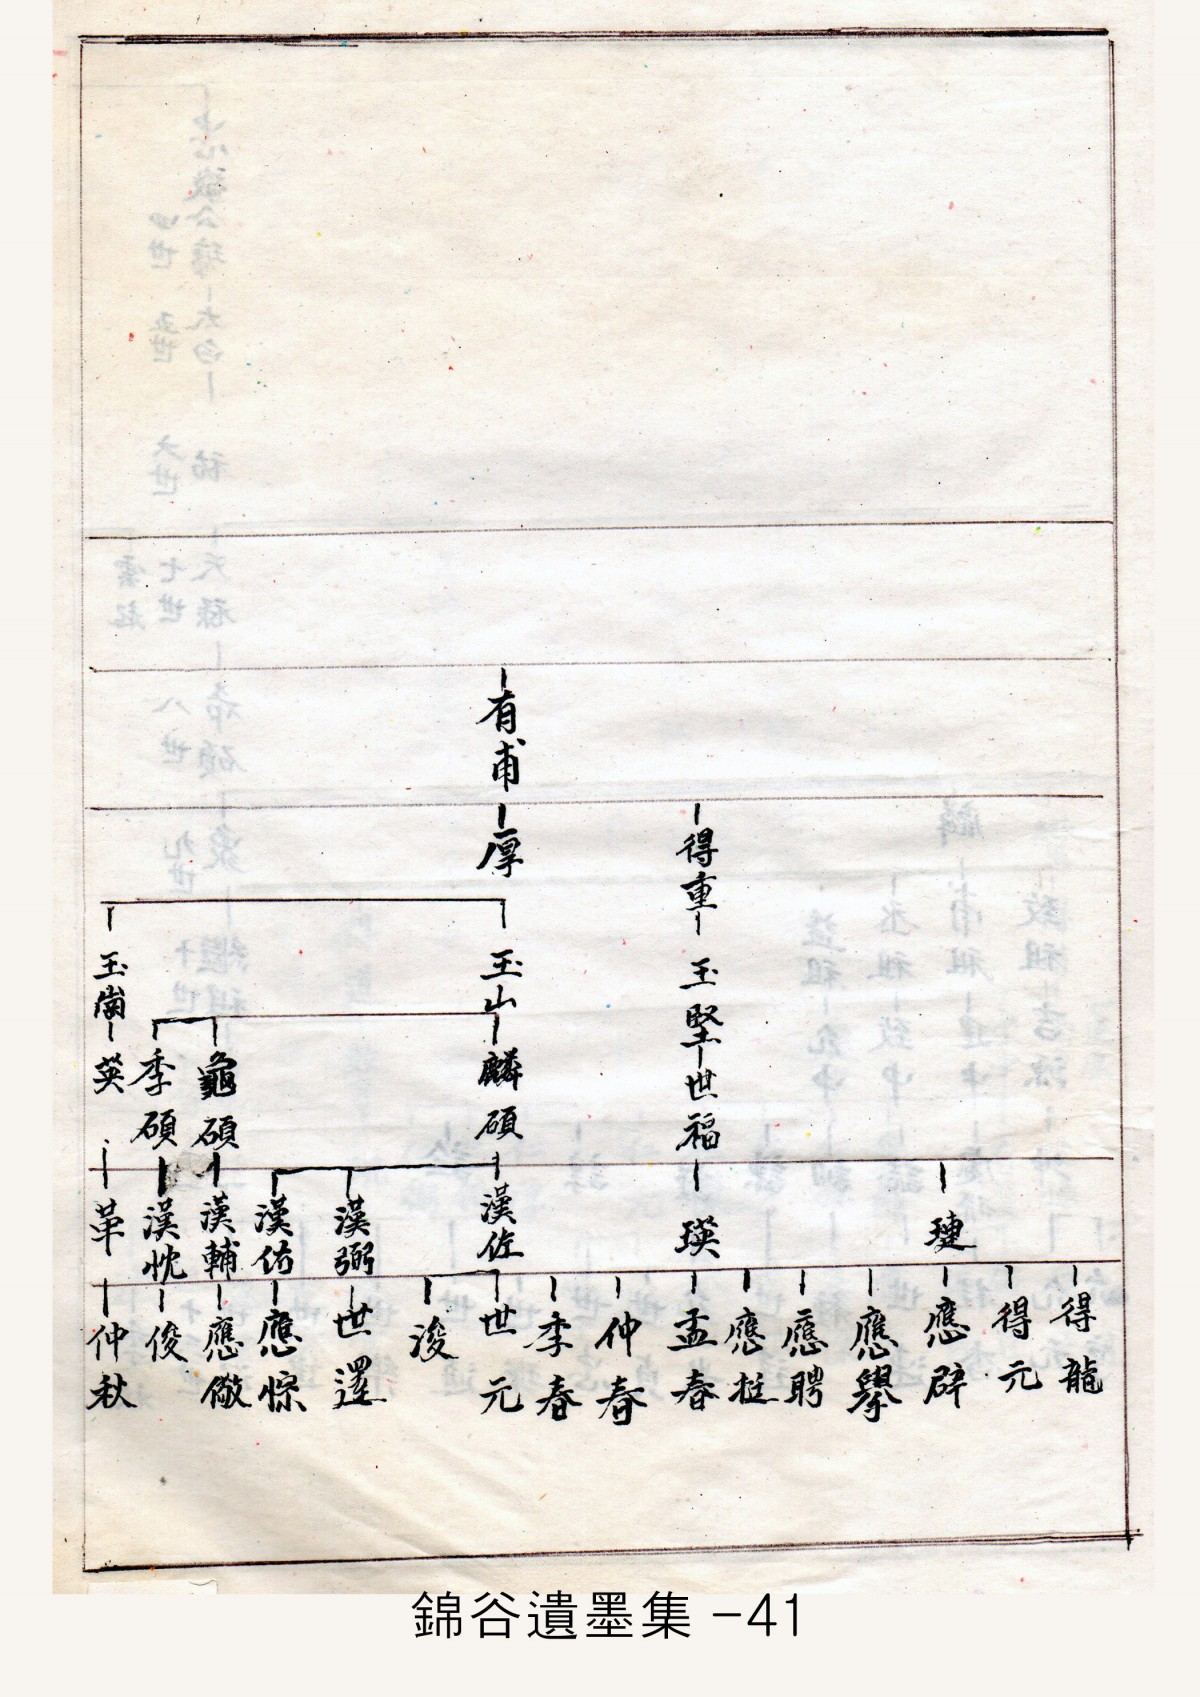 有甫
厚
得重
玉山
玉堅
玉崗
麟碩
龜碩
季碩
英
世福
璉
瑛
漢佐
漢弼
漢佑
漢輔
漢忱
革
得龍
得元
應辟
應舉
應聘
應挺
孟春
仲春
季春
世元
浚
世選
應悰
應儆
俊
仲秋
錦谷遺墨集 -41